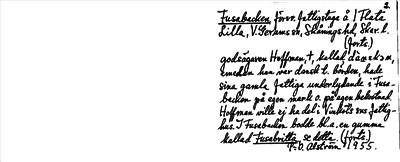 2.
Fusabacken förr. fattigstuga å 1 Plats
Lilla, V. Gerums sn, Skånings hd, Skar. l.
(forts.)
godsägaren Hoffman, †, kallad
emedan han var dansk t. börden, hade
sina gamla fattiga underlydande i Fusa-
backen på egen mark o. på egen bekostnad.
Hoffman ville ej ha del i Vinköls sns fattig-
hus. I Fusabacken bodde bl.a. en gumma
kallad Fusabritta, se detta. (forts.)
F.D. Ahlström 1955.